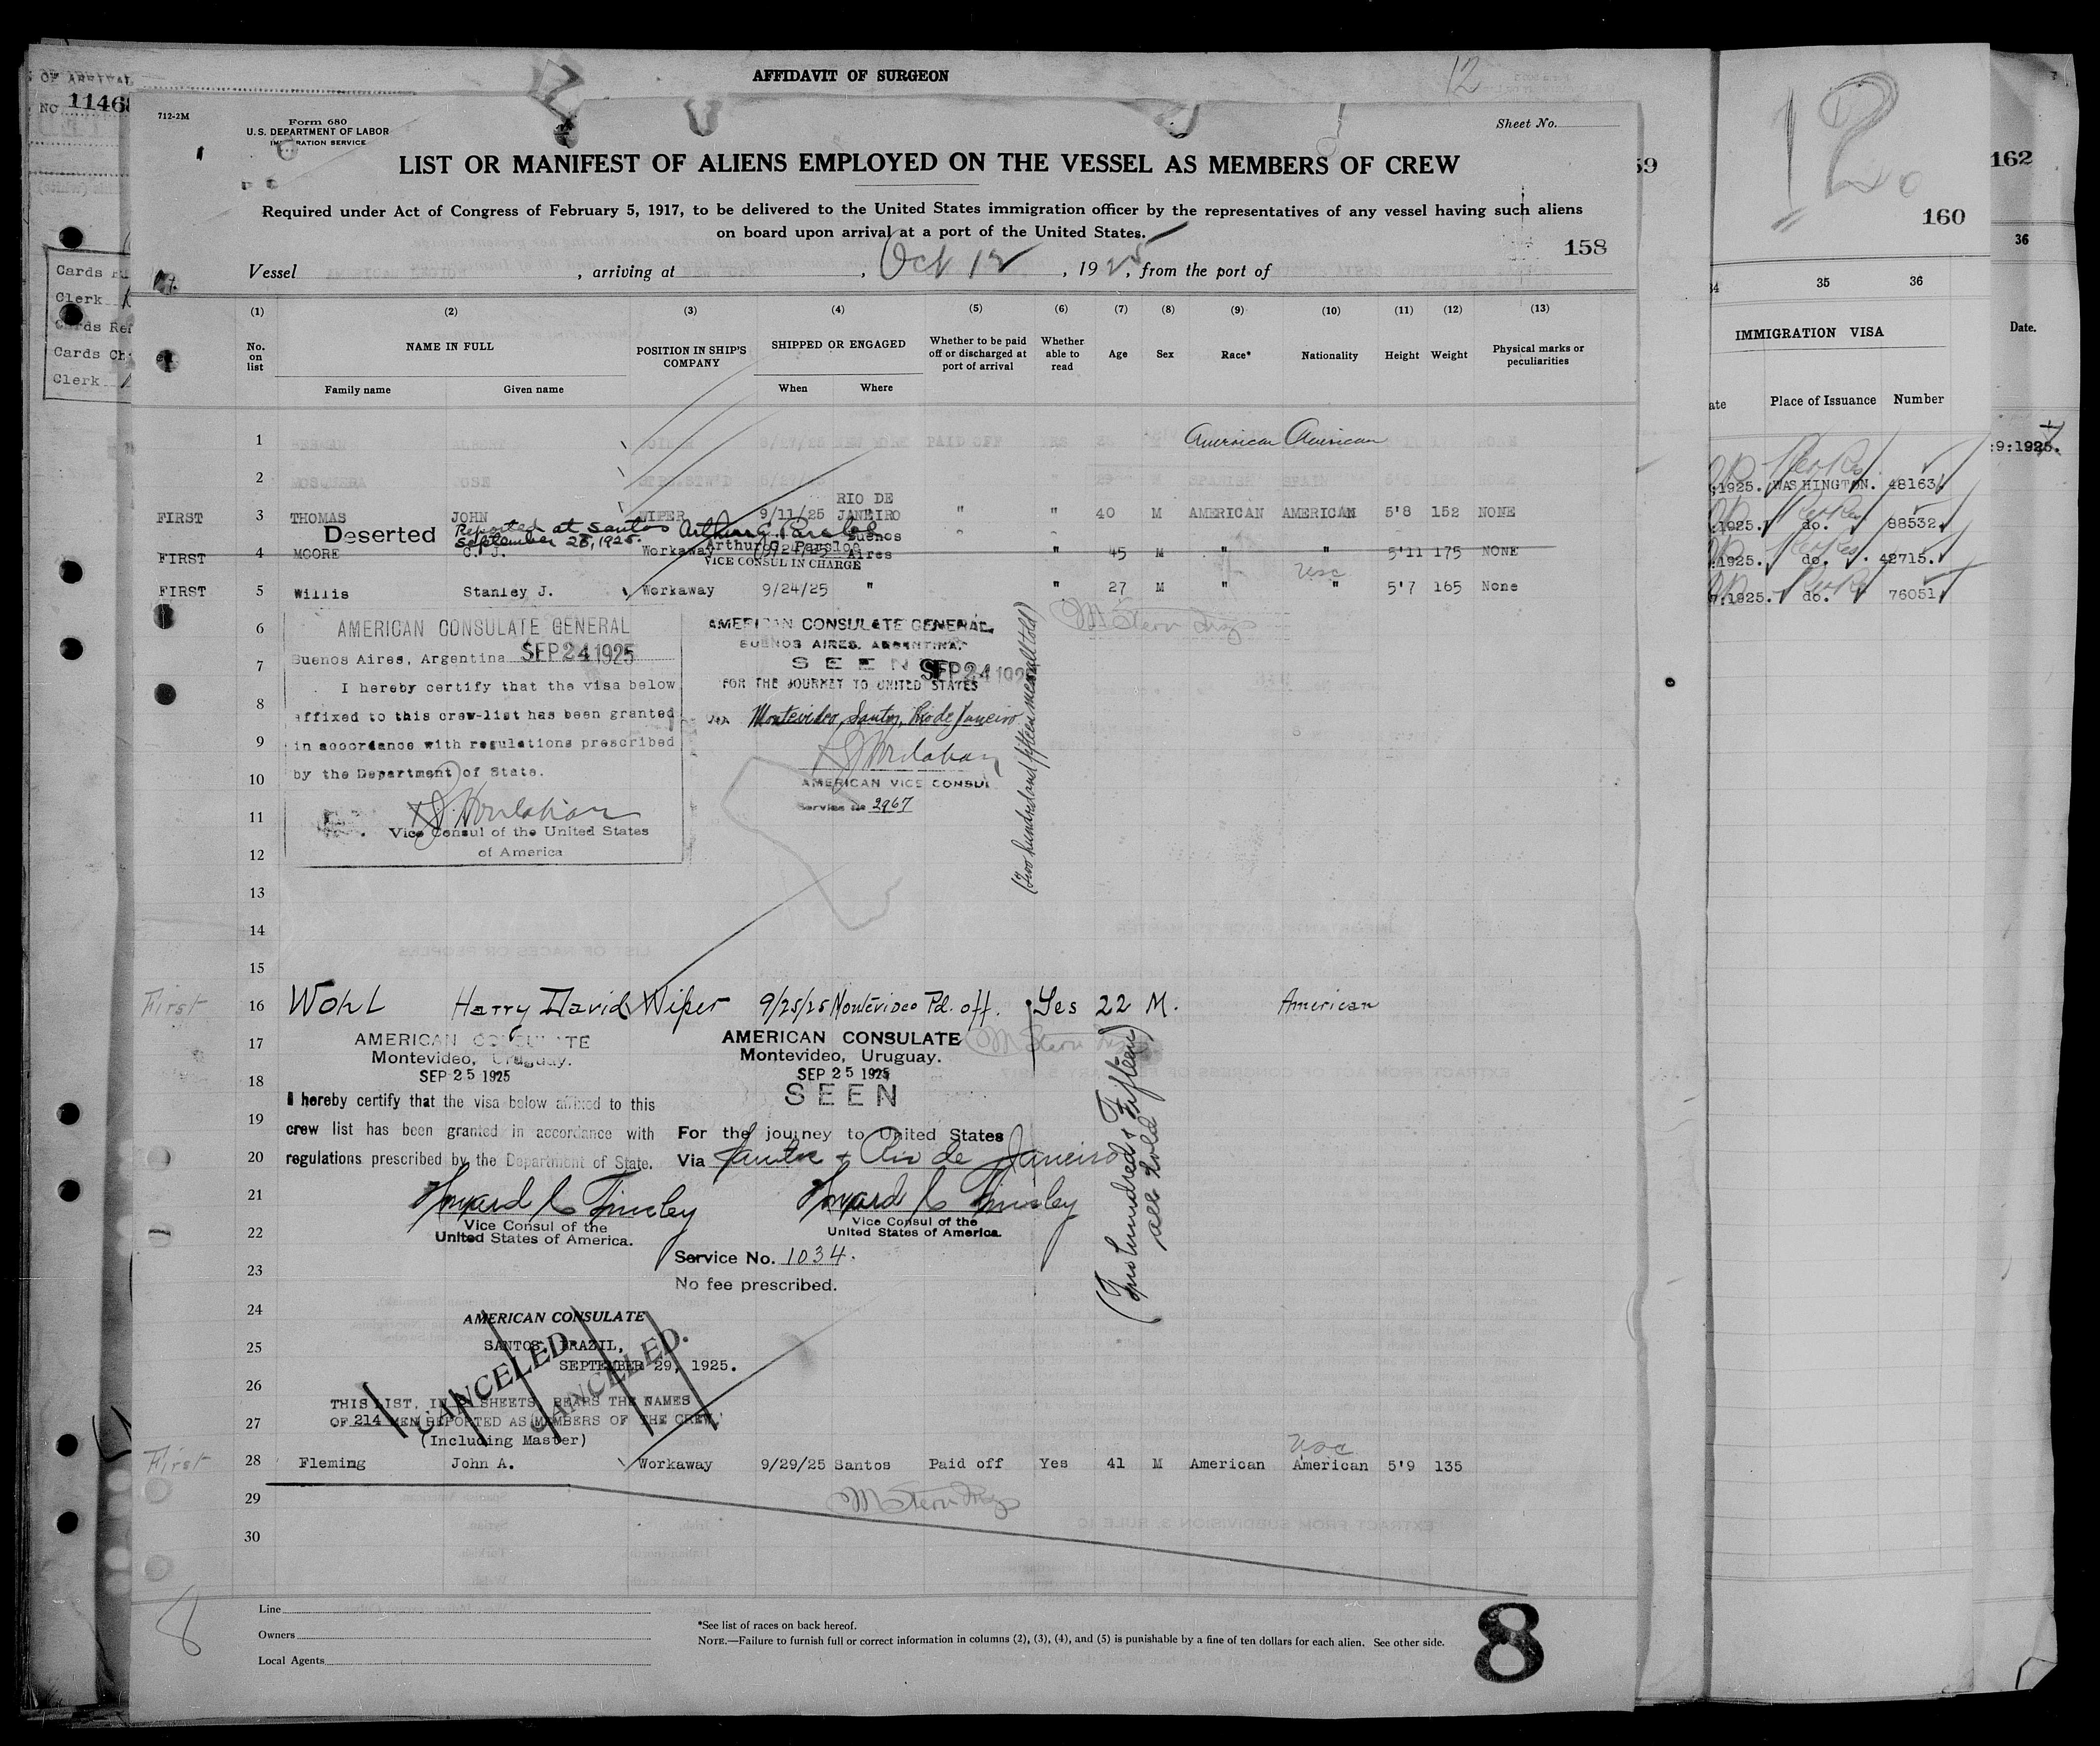 AFFIDAVIT OF SURGEON
12
NO 11468
Cards
Clerk
Cards
Cards
Clerk
712-2M
Form 680
U.S. DEPARTMENT OF LABOR
IMMIGRATION SERVICE
Sheet No.
LIST OR MANIFEST OF ALIENS EMPLOYED ON THE VESSEL AS MEMBERS OF CREW
Required under Act of Congress of February 5, 1917, to be delivered to the United States immigration officer by the representatives of any vessel having such aliens
on board upon arrival at a port of the United States.
158
Vessel AMERICAN LEGION, arriving at NEW YORK, Oct 12, 1925, from the port of
(1) (2) (3) (4) (5) (6) (7) (8) (9) (10) (11) (12) (13)
No. on list NAME IN FULL POSITION IN SHIP'S COMPANY SHIPPED OR ENGAGED Whether to be paid off or discharged at port of arrival Whether able to read Age Sex Race* Nationality Height Weight Physical marks or peculiarities
Family name Given name When Where
1 ALBERT 8/27/25 NEW YORK PAID OFF YES American American
2 MOSQUERA JOSE 29 SPANISH SPAIN
FIRST 3 THOMAS JOHN WIPER 9/11/25 RIO DE JANEIRO " " 40 M AMERICAN AMERICAN 5'8 152 NONE
Deserted Reported at Santos September 28, 1925. Arthur G. Parsloe
Arthur G. Parsloe
VICE CONSUL IN CHARGE
FIRST 4 MOORE C. J. Workaway 9/24/25 Buenos Aires " 45 M " " 5'11 175 NONE
usc
FIRST 5 Willis Stanley J. Workaway 9/24/25 " " 27 M " " 5'7 165 None
6
7
8
9
10
11
12
13
14
15
AMERICAN CONSULATE GENERAL
Buenos Aires, Argentina SEP 24 1925
I hereby certify that the visa below
affixed to this crew-list has been granted
in accordance with regulations prescribed
by the Department of State.
Vice Consul of the United States
of America
AMERICAN CONSULATE GENERAL,
BUENOS AIRES, ARGENTINA.
SEEN SEP 24 1925
FOR THE JOURNEY TO UNITED STATES
VIA Montevideo, Santos, Rio de Janeiro
AMERICAN VICE CONSUL
Service No 2967
(Two hundred and fifteen men all told)
M Stern Insp
First 16 Wohl Harry David Wiper 9/25/25 Montevideo Pd. off. Yes 22 M. American
17
18
19
20
21
22
23
AMERICAN CONSULATE
Montevideo, Uruguay.
SEP 25 1925
I hereby certify that the visa below affixed to this
crew list has been granted in accordance with
regulations prescribed by the Department of State.
Howard C Tinsley
Vice Consul of the
United States of America.
AMERICAN CONSULATE
Montevideo, Uruguay.
SEP 25 1925
SEEN
For the journey to United States
Via Santos & Rio de Janeiro
Howard C Tinsley
Vice Consul of the
United States of America.
Service No. 1034.
No fee prescribed.
M Stern Insp
(Two hundred & Fifteen)
all told
24
25
26
27
AMERICAN CONSULATE
SANTOS, BRAZIL,
SEPTEMBER 29, 1925.
THIS LIST, IN 8 SHEETS, BEARS THE NAMES
OF 214 MEN REPORTED AS MEMBERS OF THE CREW.
(Including Master)
CANCELED
CANCELED.
usc
First 28 Fleming John A. Workaway 9/29/25 Santos Paid off Yes 41 M American American 5'9 135
29
M Stern Insp
30
8
Line
Owners
Local Agents
*See list of races on back hereof.
NOTE.—Failure to furnish full or correct information in columns (2), (3), (4), and (5) is punishable by a fine of ten dollars for each alien. See other side.
8
59
12
160
35 36
IMMIGRATION VISA
Place of Issuance Number
1925. WASHINGTON. 48163
1925. do. 88532
1925. do. 42715.
1925. do. 76051
162
36
Date.
:9:1925.